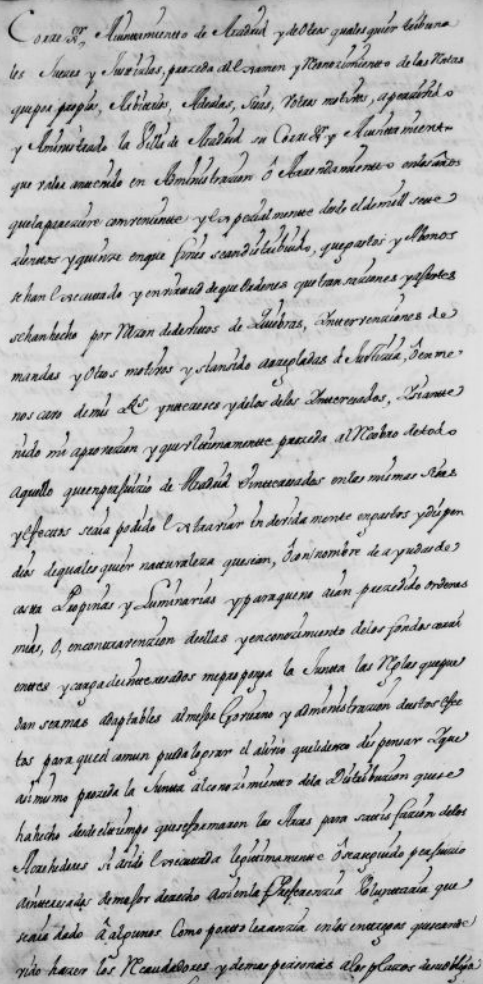 Correxr. Aiuntamientto de Madrid y de Otros qualesquier tribuna
les Jueces y Justicias, proceda al examen y Reconozimientto de las Rentas
que por propios, Arbitrios, Alcavalas, Sisas, y otros motivos, a percivido
y Administrado la Villa de Madrid su Correxr. y Aiuntamientto
que valor an tenido en Administrazion ô Arrendamientto en los años
que la pareziere combeniente y Especialmente desde el de mill sete
zientos y quinze en que fines se an distribuido, que gastos y Abonos
se han Executado y en virtud de que Ordenes que transaciones y ajustes
se han hecho por Razon de devitos de Quiebras, Intervenziones de
mandas y Otros motivos y si an sido arregladas â Justicia, ô en me
nos caro de mis Rs. yntereses y de los de los Interesados,
nido mi aprovazion y que ultimamente proceda al Recobro de todo
aquello que en perjuizio de Madrid e interesados en las mismas sisas
y efectos se aia podido Extraviar Indevidamente en gastos y dispen
dios de qualesquier naturaleza que sean, ô con nombre de ayudas de
costa Propinas y Luminarias y para que no aian prezedido ordenes
mias, o, en contravenzion de ellas y en conozimiento de los fondos
entes y carga de interesados me proponga la Junta las Reglas que pue
dan ser mas adaptables al mejor Govierno y administrazion de estos efec
tos para que el comun pueda lograr el alivio que le deseo dispensar Y que
asimismo proceda la Junta al conozimientto de la Distribuzion que se
ha hecho desde el tiempo que se formaron las Arcas para satisfazion de los
Acrehedores si a sido Executada legitimamente ô se a seguido perjuizio
a interesados de mejor derecho Preferenzia Voluntaria que
se aia dado â algunos Como por toleranzia en las entregas que
vido hazer los Recaudadores y demas personas a los plazos de su obliga